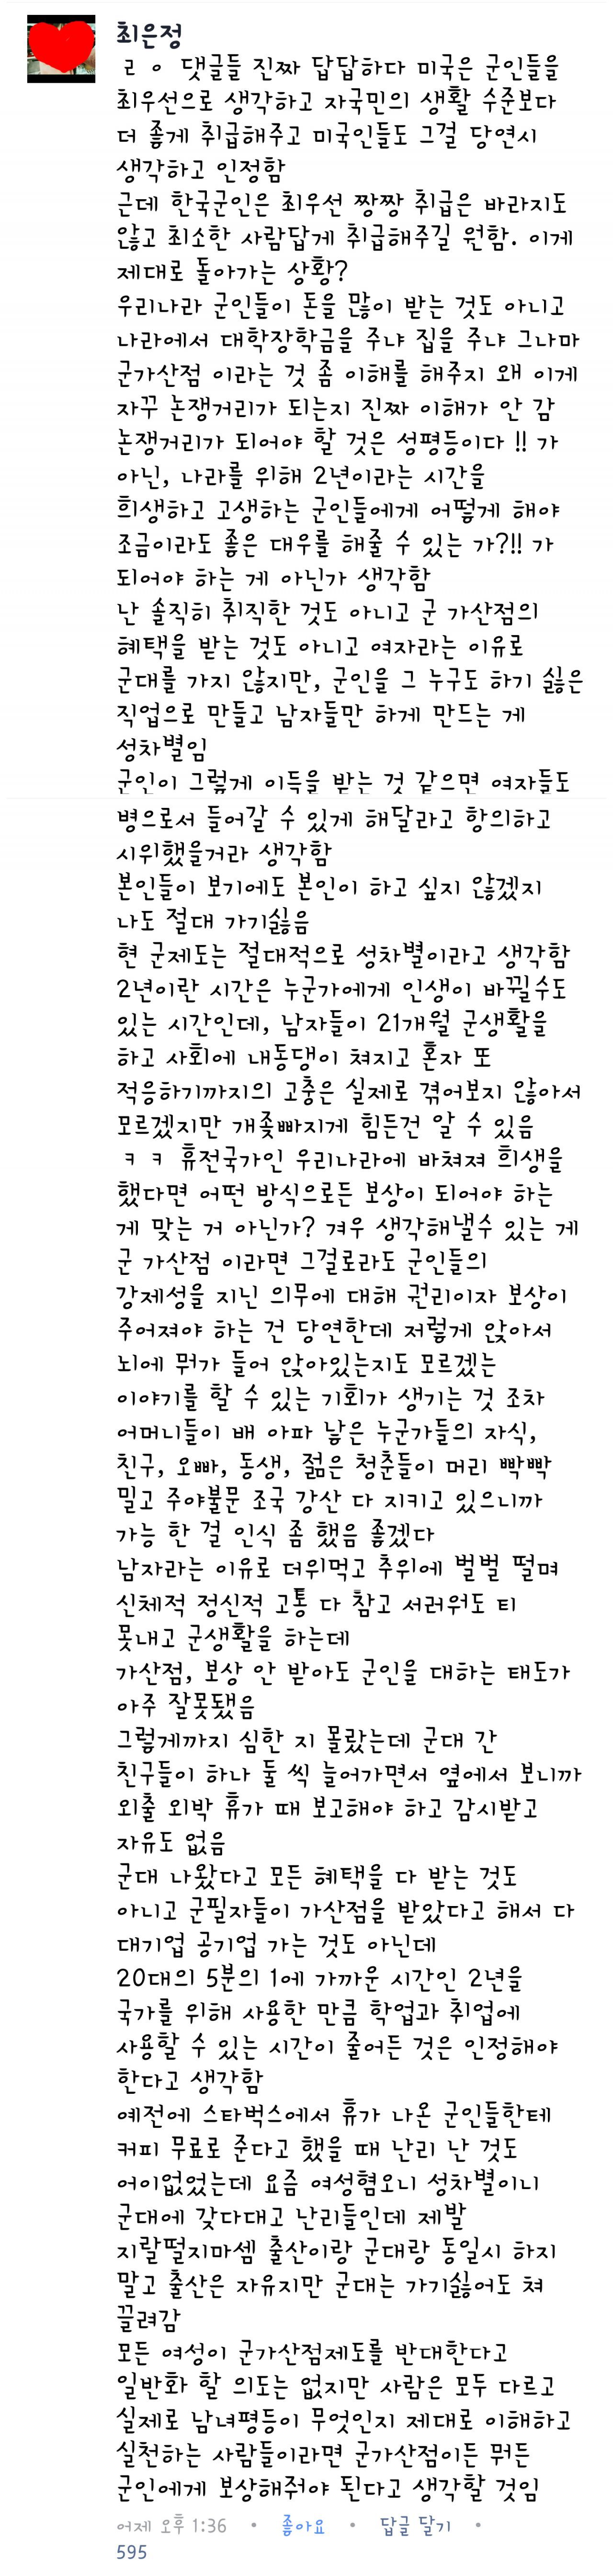 최은정
ㄹㅇ 댓글들 진짜 답답하다 미국은 군인들을
최우선으로 생각하고 자국민의 생활 수준보다
더 좋게 취급해주고 미국인들도 그걸 당연시
생각하고 인정함
근데 한국군인은 최우선 짱짱 취급은 바라지도
않고 최소한 사람답게 취급해주길 원함. 이게
제대로 돌아가는 상황?
우리나라 군인들이 돈을 많이 받는 것도 아니고
나라에서 대학장학금을 주냐 집을 주냐 그나마
군가산점 이라는 것 좀 이해를 해주지 왜 이게
자꾸 논쟁거리가 되는지 진짜 이해가 안 감
논쟁거리가 되어야 할 것은 성평등이다 !! 가
아닌, 나라를 위해 2년이라는 시간을
희생하고 고생하는 군인들에게 어떻게 해야
조금이라도 좋은 대우를 해줄 수 있는 가?!! 가
되어야 하는 게 아닌가 생각함
난 솔직히 취직한 것도 아니고 군 가산점의
혜택을 받는 것도 아니고 여자라는 이유로
군대를 가지 않지만, 군인을 그 누구도 하기 싫은
직업으로 만들고 남자들만 하게 만드는 게
성차별임
군인이 그렇게 이득을 받는 것 같으면 여자들도
병으로서 들어갈 수 있게 해달라고 항의하고
시위했을거라 생각함
본인들이 보기에도 본인이 하고 싶지 않겠지
나도 절대 가기싫음
현 군제도는 절대적으로 성차별이라고 생각함
2년이란 시간은 누군가에게 인생이 바뀔수도
있는 시간인데, 남자들이 21개월 군생활을
하고 사회에 내동댕이 쳐지고 혼자 또
적응하기까지의 고충은 실제로 겪어보지 않아서
모르겠지만 개좆빠지게 힘든건 알 수 있음
ㅋㅋ 휴전국가인 우리나라에 바쳐져 희생을
했다면 어떤 방식으로든 보상이 되어야 하는
게 맞는 거 아닌가? 겨우 생각해낼수 있는 게
군 가산점 이라면 그걸로라도 군인들의
강제성을 지닌 의무에 대해 권리이자 보상이
주어져야 하는 건 당연한데 저렇게 앉아서
뇌에 뭐가 들어 앉아있는지도 모르겠는
이야기를 할 수 있는 기회가 생기는 것 조차
어머니들이 배 아파 낳은 누군가들의 자식,
친구, 오빠, 동생, 젊은 청춘들이 머리 빡빡
밀고 주야불문 조국 강산 다 지키고 있으니까
가능 한 걸 인식 좀 했음 좋겠다
남자라는 이유로 더위먹고 추위에 벌벌 떨며
신체적 정신적 고통 다 참고 서러워도 티
못내고 군생활을 하는데
가산점, 보상 안 받아도 군인을 대하는 태도가
아주 잘못됐음
그렇게까지 심한 지 몰랐는데 군대 간
친구들이 하나 둘 씩 늘어가면서 옆에서 보니까
외출 외박 휴가 때 보고해야 하고 감시받고
자유도 없음
군대 나왔다고 모든 혜택을 다 받는 것도
아니고 군필자들이 가산점을 받았다고 해서 다
대기업 공기업 가는 것도 아닌데
20대의 5분의 1에 가까운 시간인 2년을
국가를 위해 사용한 만큼 학업과 취업에
사용할 수 있는 시간이 줄어든 것은 인정해야
한다고 생각함
예전에 스타벅스에서 휴가 나온 군인들한테
커피 무료로 준다고 했을 때 난리 난 것도
어이없었는데 요즘 여성혐오니 성차별이니
군대에 갖다대고 난리들인데 제발
지랄떨지마셈 출산이랑 군대랑 동일시 하지
말고 출산은 자유지만 군대는 가기싫어도 쳐
끌려감
모든 여성이 군가산점제도를 반대한다고
일반화 할 의도는 없지만 사람은 모두 다르고
실제로 남녀평등이 무엇인지 제대로 이해하고
실천하는 사람들이라면 군가산점이든 뭐든
군인에게 보상해줘야 된다고 생각할 것임
어제 오후 1:36 • 좋아요 • 답글 달기 •
595